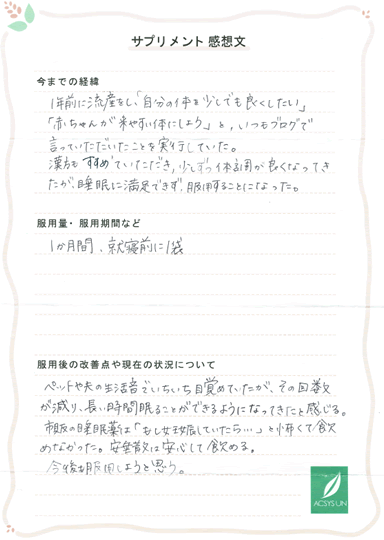 サプリメント 感想文
今までの経緯
1年前に流産をし、「自分の体を少しでも良くしたい」
「赤ちゃんが来やすい体にしよう」と、いつもブログで
言っていただいたことを実行していた。
漢方もすすめていただき、少しずつ体調が良くなってき
たが、睡眠に満足できず、服用することになった。
服用量・服用期間など
1か月間、就寝前に1袋
服用後の改善点や現在の状況について
ペットや夫の生活音でいちいち目覚めていたが、その回数
が減り、長い時間眠ることができるようになってきたと感じる。
市販の睡眠薬は「もし妊娠していたら…」と怖くて飲
めなかった。安整散は安心して飲める。
今後も服用しようと思う。
ACSYS UN